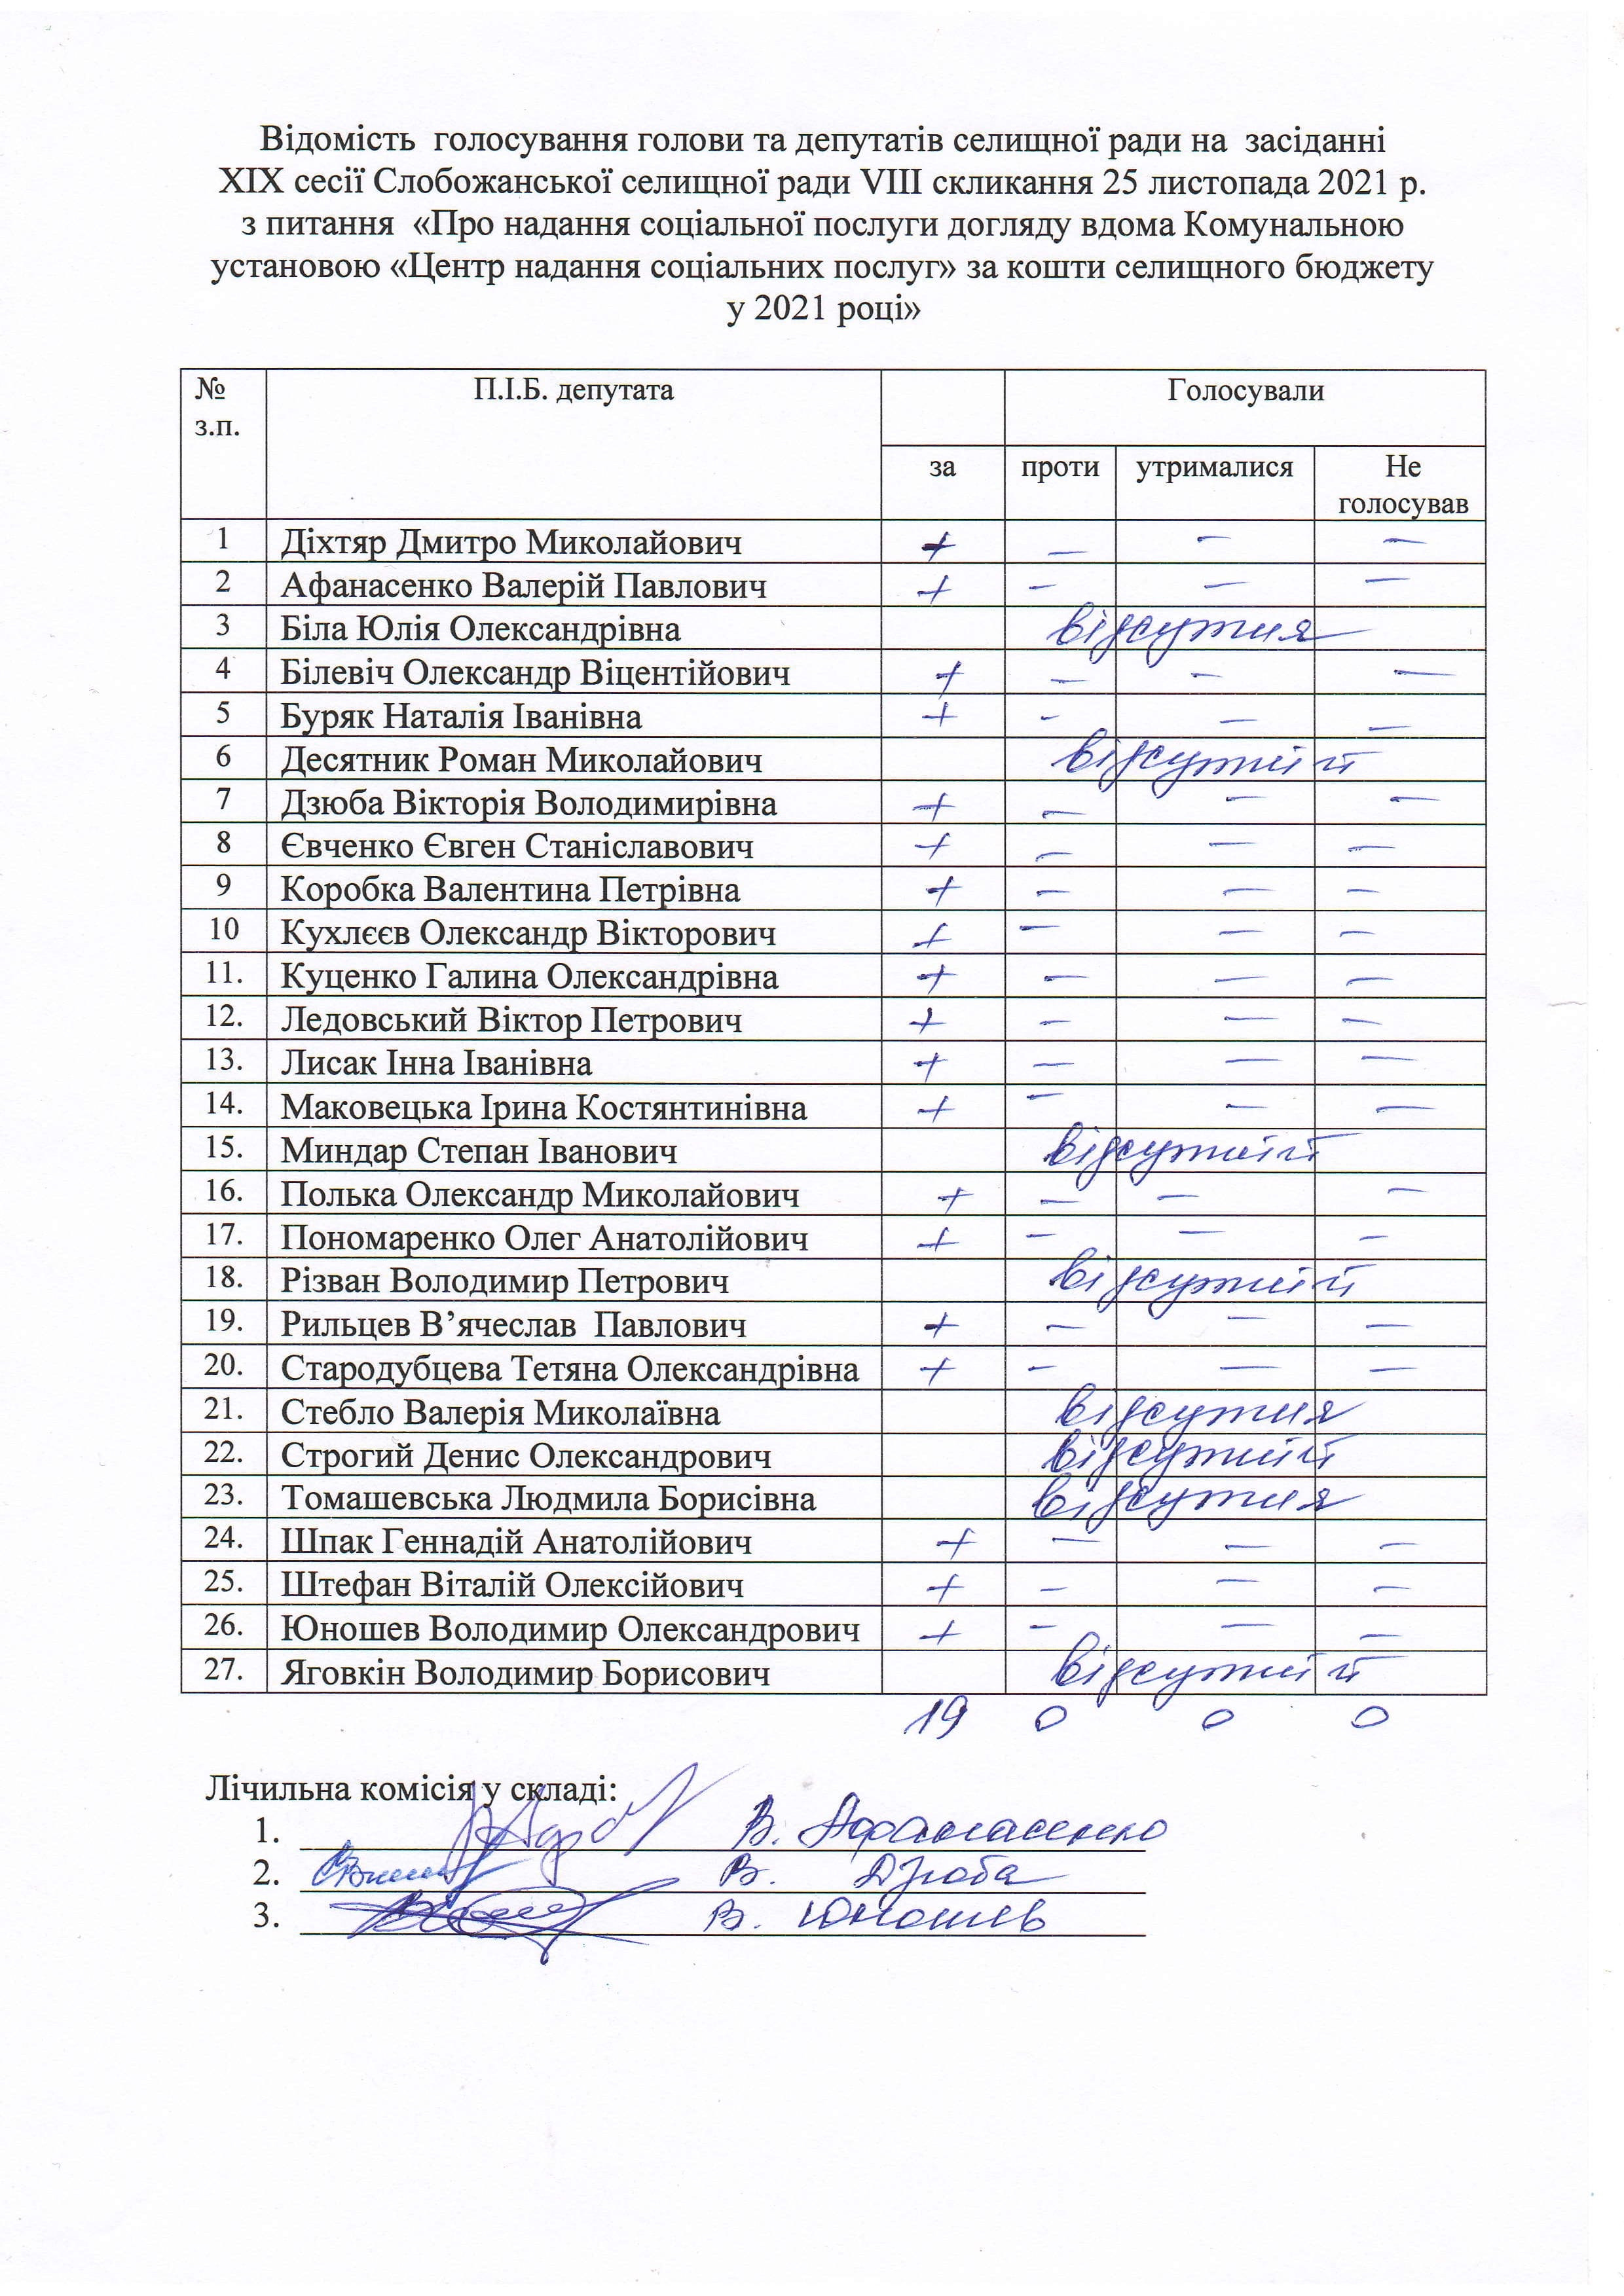 Відомість голосування голови та депутатів селищної ради на засіданні
XIX сесії Слобожанської селищної ради VIII скликання 25 листопада 2021 р.
з питання «Про надання соціальної послуги догляду вдома Комунальною
установою «Центр надання соціальних послуг» за кошти селищного бюджету
у 2021 році»
№ П.І.Б. депутата Голосували
з.п.
за проти утрималися Не
голосував
1 Діхтяр Дмитро Миколайович + – – –
2 Афанасенко Валерій Павлович + – – –
3 Біла Юлія Олександрівна відсутня
4 Білевіч Олександр Віцентійович + – – –
5 Буряк Наталія Іванівна + – – –
6 Десятник Роман Миколайович відсутній
7 Дзюба Вікторія Володимирівна + – – –
8 Євченко Євген Станіславович + – – –
9 Коробка Валентина Петрівна + – – –
10 Кухлєєв Олександр Вікторович + – – –
11. Куценко Галина Олександрівна + – – –
12. Ледовський Віктор Петрович + – – –
13. Лисак Інна Іванівна + – – –
14. Маковецька Ірина Костянтинівна + – – –
15. Миндар Степан Іванович відсутній
16. Полька Олександр Миколайович + – – –
17. Пономаренко Олег Анатолійович + – – –
18. Різван Володимир Петрович відсутній
19. Рильцев В’ячеслав Павлович + – – –
20. Стародубцева Тетяна Олександрівна + – – –
21. Стебло Валерія Миколаївна відсутня
22. Строгий Денис Олександрович відсутній
23. Томашевська Людмила Борисівна відсутня
24. Шпак Геннадій Анатолійович + – – –
25. Штефан Віталій Олексійович + – – –
26. Юношев Володимир Олександрович + – – –
27. Яговкін Володимир Борисович відсутній
19 0 0 0
Лічильна комісія у складі:
1. В. Афанасенко
2. В. Дзюба
3. В. Юношев